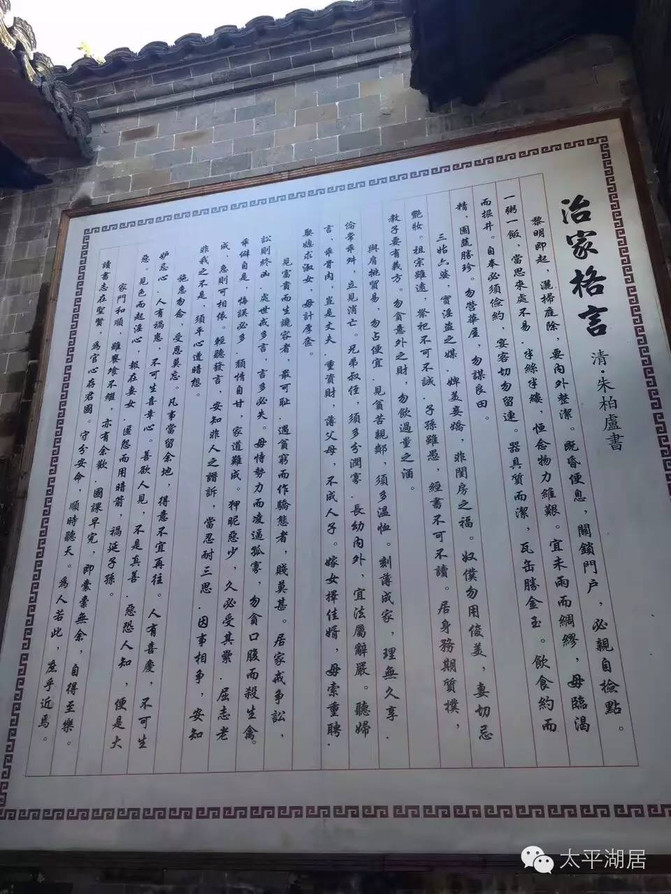 治家格言 清·朱柏廬書
黎明即起，灑掃庭除，要內外整潔。既昏便息，關鎖門户，必親自檢點。
一粥一飯，當思來處不易．半絲半縷，恒念物力維艱。宜未雨而綢繆，毋臨渴
而掘井。自奉必須儉約，宴客切勿留連．器具質而潔，瓦缶勝金玉。飲食約而
精，園蔬勝珍．勿營華屋，勿謀良田。
三姑六婆，實淫盜之媒．婢美妾嬌，非閨房之福。奴僕勿用俊美，妻切忌
艷妝．祖宗雖遠，祭祀不可不誠．子孫雖愚，經書不可不讀。居身務期質樸，
教子要有義方．勿貪意外之財，勿飲過量之酒。
與肩挑貿易，勿占便宜．見貧苦親鄰，須多溫恤。刻薄成家，理無久享．
倫常乖舛，立見消亡。兄弟叔侄，須多分潤寡．長幼內外，宜法屬辭嚴。聽婦
言，乖骨肉，豈是丈夫．重資財，薄父母，不成人子。嫁女擇佳婿，毋索重聘．
娶媳求淑女，毋計厚奩。
見富貴而生諂容者，最可恥．遇貧窮而作驕態者，賤莫甚。居家戒爭訟，
訟則終凶．處世戒多言，言多必失。毋恃勢力而凌逼孤寡，勿貪口腹而殺生禽。
乖僻自是，悔誤必多．頹惰自甘，家道難成。狎昵惡少，久必受其累．屈志老
成，急則可相依。輕聽發言，安知非人之譖訴，當忍耐三思．因事相爭，安知
非我之不是，須平心遭暗想。
施惠勿念，受恩莫忘。凡事當留余地，得意不宜再往。人有喜慶，不可生
妒忌心．人有禍患，不可生喜幸心。善欲人見，不是真善．惡恐人知，便是大
惡。見色而起淫心，報在妻女．匿怨而用暗箭，禍延子孫。
家門和順，雖饔飧不繼，亦有余歡．國課早完，即囊橐無余，自得至樂。
讀書志在聖賢，為官心存君國。守分安命，順時聽天。為人若此，庶乎近焉。
太平湖居